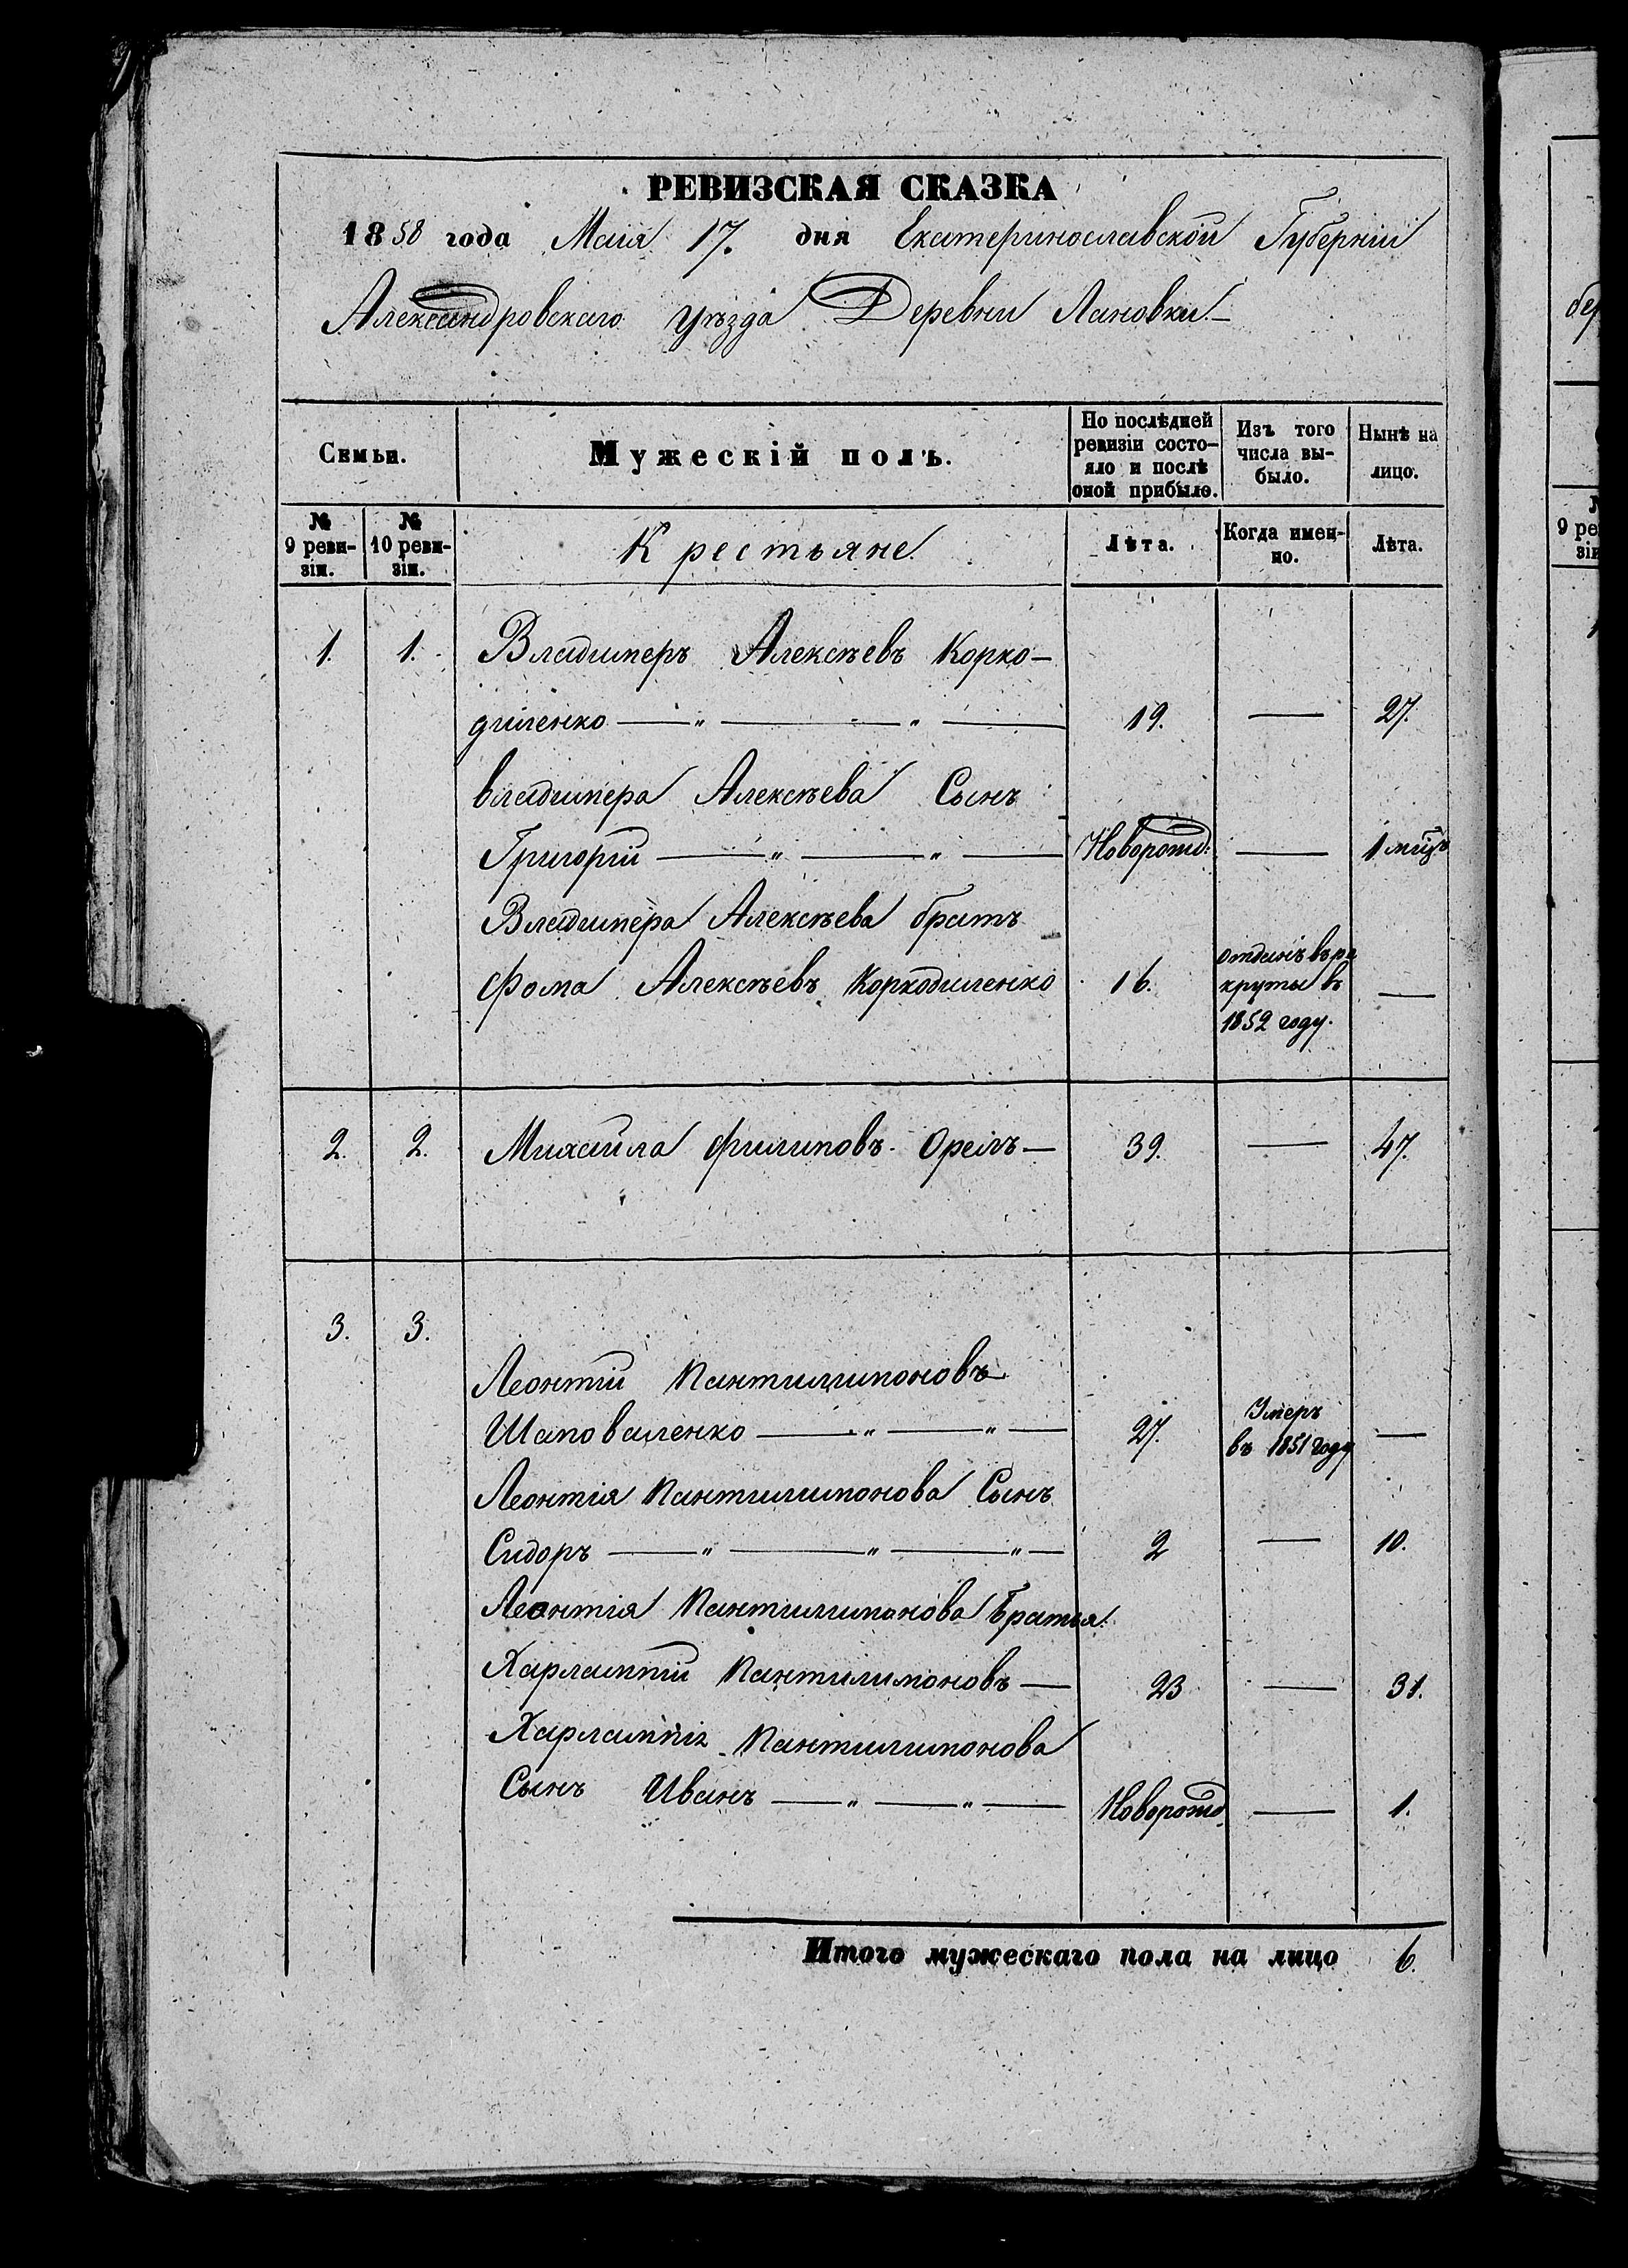 РЕВИЗСКАЯ СКАЗКА
1858 года Маія 17. дня Екатеринославской Губерніи
Александровскаго уѣзда Деревни Лановки.
Семьи.
Мужескій полъ.
По послѣдней ревизіи состо-
яло и послѣ
оной прибыло.
Изъ того
числа вы-
было.
Нынѣ на
лицо.
№
9 реви-
зіи.
№
10 реви-
зіи.
Крестьяне.
Лѣта.
Когда имен-
но.
Лѣта.
1. 1. Владимеръ Алексѣевъ Корко-
диленко — „ — „ — 19. — 27.
владимера Алексѣева Сынъ
Григорій — „ — „ — Новорожд: — 1 мцъ
Владимера Алексѣева братъ
Фома Алексѣевъ Коркодиленко 16. отданъ въ ре
круты въ
1852 году. —
2. 2. Михайла Филиповъ Орелъ — 39. — 47.
3. 3.
Леонтій Пантилимоновъ
Шаповаленко — „ — „ — 27. Умеръ
въ 1851 году —
Леонтія Пантилимонова Сынъ
Сидоръ — „ — „ — „ — 2 — 10.
Леонтія Пантилимонова Братья:
Харлампій Пантилимоновъ — 23 — 31.
Харлампія Пантилимонова
Сынъ Иванъ — „ — „ — Новорожд. — 1.
Итого мужескаго пола на лицо 6.
9 ре
зі